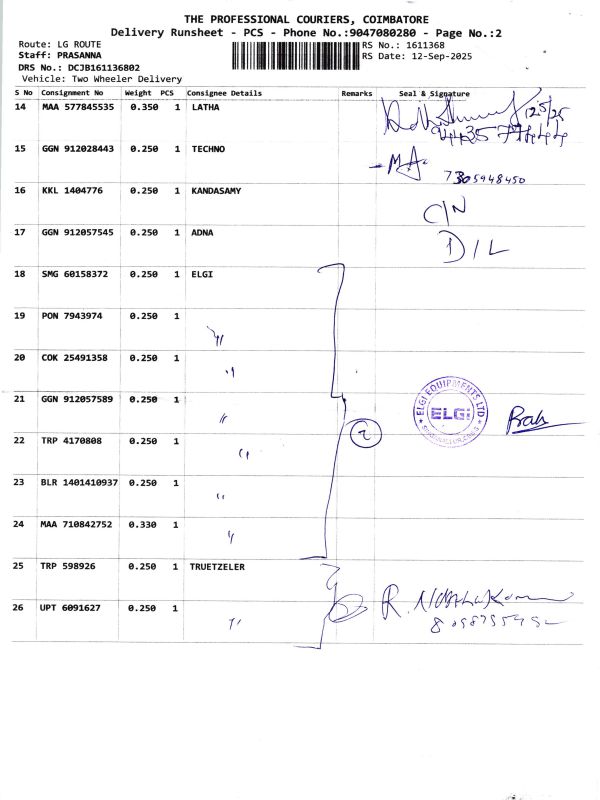 THE PROFESSIONAL COURIERS, COIMBATORE
Delivery Runsheet - PCS - Phone No.:9047080280 - Page No.:2
Route: LG ROUTE RS No.: 1611368
Staff: PRASANNA RS Date: 12-Sep-2025
DRS No.: DCJB161136802
Vehicle: Two Wheeler Delivery
S No Consignment No Weight PCS Consignee Details Remarks Seal & Signature
14 MAA 577845535 0.350 1 LATHA
15 GGN 912028443 0.250 1 TECHNO
7305948450
16 KKL 1404776 0.250 1 KANDASAMY
C/N
17 GGN 912057545 0.250 1 ADNA
D/L
18 SMG 60158372 0.250 1 ELGI
19 PON 7943974 0.250 1
〃
20 COK 25491358 0.250 1
〃
21 GGN 912057589 0.250 1
〃
ELGI EQUIPMENTS LTD
ELGi
22 TRP 4170808 0.250 1
〃
23 BLR 1401410937 0.250 1
〃
24 MAA 710842752 0.330 1
〃
25 TRP 598926 0.250 1 TRUETZELER
26 UPT 6091627 0.250 1
〃